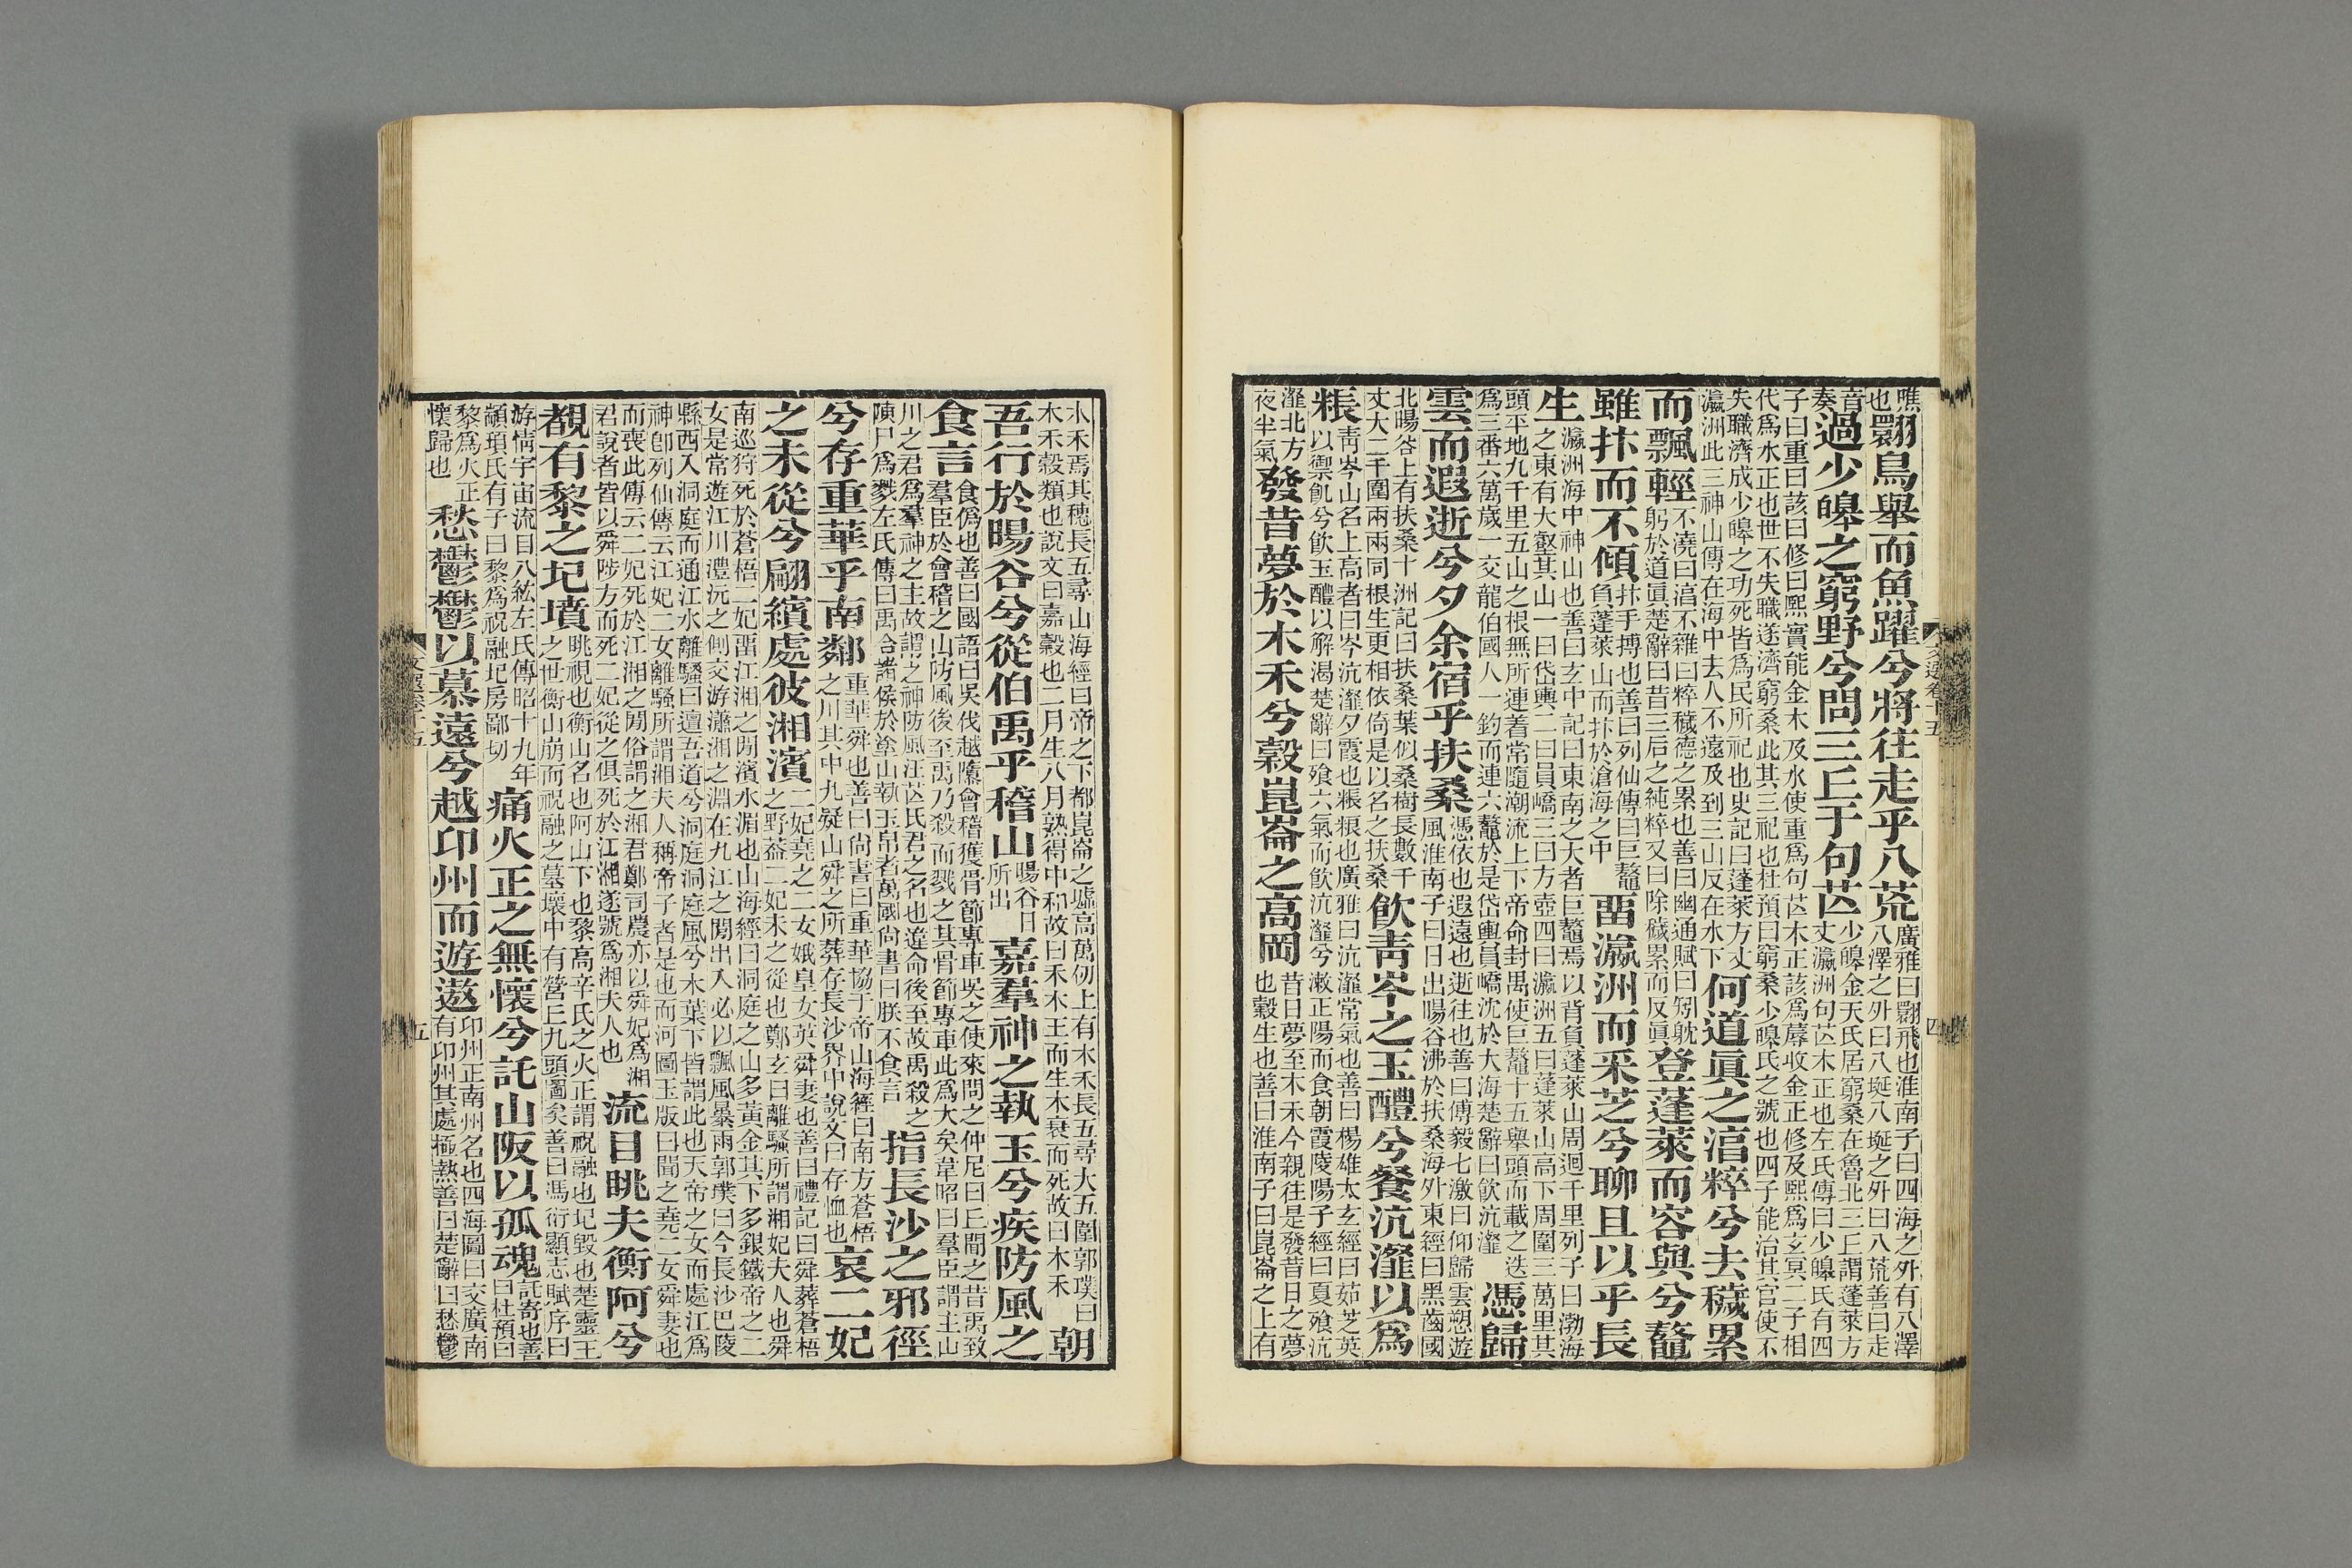 噍也翾鳥舉而魚躍兮將往走乎八荒廣雅曰翾飛也淮南子曰四海之外有八澤八澤之外曰八埏八埏之外曰八荒善曰走
音奏過少皞之窮野兮問三丘于句芒少皞金天氏居窮桑在魯北三丘謂蓬萊方丈瀛洲句芒木正也左氏傳曰少皞氏有四
子曰重曰該曰修曰熙實能金木及水使重爲句芒木正該爲蓐收金正修及熙爲玄冥二子相代爲水正也世不失職遂濟窮桑此其三祀也杜預曰窮桑少皞氏之號也四子能治其官使不
失職濟成少皞之功死皆爲民所祀也史記曰蓬萊方丈瀛洲此三神山傳在海中去人不遠及到三山反在水下何道眞之湻粹兮去穢累
而飄輕不澆曰湻不雜曰粹穢德之累也善曰幽通賦曰矧躭躬於道眞楚辭曰昔三后之純粹又曰除穢累而反眞登蓬萊而容與兮鼇
雖抃而不傾抃手搏也善曰列仙傳曰巨鼇負蓬萊山而抃於滄海之中畱瀛洲而采芝兮聊且以乎長
生瀛洲海中神山也善曰玄中記曰東南之大者巨鼇焉以背負蓬萊山周迴千里列子曰渤海之東有大壑其山一曰岱輿二曰員嶠三曰方壺四曰瀛洲五曰蓬萊山高下周圍三萬里其
頭平地九千里五山之根無所連着常隨潮流上下帝命封禺使巨鼇十五舉頭而載之迭爲三番六萬歲一交龍伯國人一釣而連六鼇於是岱輿員嶠沈於大海楚辭曰飲沆瀣憑歸
雲而遐逝兮夕余宿乎扶桑憑依也遐遠也逝往也善曰傅毅七激曰仰歸雲愬遊風淮南子曰日出暘谷沸於扶桑海外東經曰黑齒國
北暘谷上有扶桑十洲記曰扶桑葉似桑樹長數千丈大二千圍兩兩同根生更相依倚是以名之扶桑飲青岑之玉醴兮餐沆瀣以爲
粻青岑山名上高者曰岑沆瀣夕霞也粻糧也廣雅曰沆瀣常氣也善曰楊雄太玄經曰茹芝英以禦飢兮飲玉醴以解渴楚辭曰飱六氣而飲沆瀣兮漱正陽而食朝霞陵陽子經曰夏飱沆
瀣北方夜半氣發昔夢於木禾兮穀崑崙之高岡昔日夢至木禾今親往是發昔日之夢也穀生也善曰淮南子曰崑崙之上有
木禾焉其穗長五尋山海經曰帝之下都崑崙之墟高萬仞上有木禾長五尋大五圍郭璞曰木禾穀類也說文曰嘉穀也二月生八月熟得中和故曰禾木王而生木衰而死故曰木禾朝
吾行於暘谷兮從伯禹乎稽山暘谷日所出嘉羣神之執玉兮疾防風之
食言食僞也善曰國語曰吳伐越隳會稽獲骨節專車吳之使來問之仲尼曰丘聞之昔禹致羣臣於會稽之山防風後至禹乃殺而戮之其骨節專車此爲大矣韋昭曰羣臣謂主山
川之君爲羣神之主故謂之神防風汪芒氏君之名也違命後至故禹殺之陳尸爲戮左氏傳曰禹合諸侯於塗山執玉帛者萬國尚書曰朕不食言指長沙之邪徑
兮存重華乎南鄰重華舜也善曰尚書曰重華協于帝山海經曰南方蒼梧之川其中九疑山舜之所葬存長沙界中說文曰存恤也哀二妃
之未從兮翩繽處彼湘濱二妃堯之二女娥皇女英舜妻也善曰禮記曰舜葬蒼梧之野葢二妃未之從也鄭玄曰離騷所謂湘妃夫人也舜
南巡狩死於蒼梧二妃畱江湘之閒濱水湄也山海經曰洞庭之山多黃金其下多銀鐵帝之二女是常遊江川澧沅之側交游瀟湘之淵在九江之閒出入必以飄風暴雨郭璞曰今長沙巴陵
縣西入洞庭而通江水離騷曰邅吾道兮洞庭洞庭風兮木葉下皆謂此也天帝之女而處江爲神卽列仙傳云江妃二女離騷所謂湘夫人稱帝子者是也而河圖玉版曰聞之堯二女舜妻也
而喪此傳云二妃死於江湘之閒俗謂之湘君鄭司農亦以舜妃爲湘君說者皆以舜陟方而死二妃從之俱死於江湘遂號爲湘夫人也流目眺夫衡阿兮
覩有黎之圮墳眺視也衡山名也阿山下也黎高辛氏之火正謂祝融也圮毀也楚靈王之世衡山崩而祝融之墓壞中有營丘九頭圖矣善曰馮衍顯志賦序曰
游情宇宙流目八紘左氏傳昭十九年顓頊氏有子曰黎爲祝融圮房鄙切痛火正之無懷兮託山阪以孤魂託寄也善曰杜預曰
黎爲火正懷歸也愁鬱鬱以慕遠兮越卬州而遊遨卬州正南州名也四海圖曰交廣南有卬州其處極熱善曰楚辭曰愁鬱